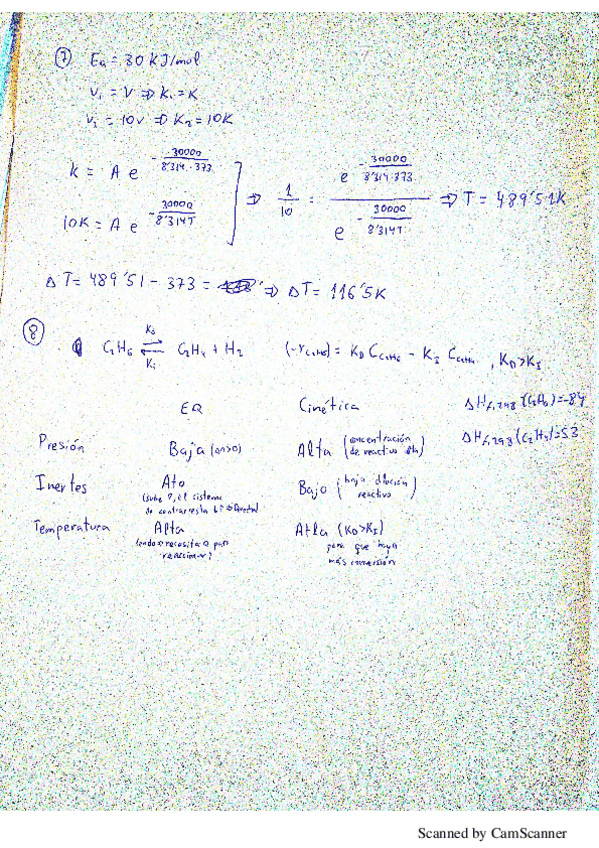 7 Ea = 30 KJ/mol
V₁ = V ⇒ k₁ = K
V₂ = 10V ⇒ K₂ = 10K
k = A e^(-30000/(8'314·373)) ⇒ 1/10 = e^(-30000/(8'314·373)) / e^(-30000/(8'314T)) ⇒ T = 489'51K
10K = A e^(-30000/(8'314T))
ΔT = 489'51 - 373 = ⇒ ΔT = 116'5K
8 C₂H₆ ⇌ C₂H₄ + H₂ (-r C₂H₆) = K_D C_C₂H₆ - K_I C_C₂H₄, K_D > K_I
EQ Cinética ΔHf,298 (C₂H₆) = -84
ΔHf,298 (C₂H₄) = 53
Presión Baja (Δn>0) Alta (concentración de reactivo alta)
Inertes Ato (sube P, el sistema de contrarresta) Bajo (baja dilución reactivo)
Temperatura Alta (endo necesita Q para reaccionar) Atla (K_D>K_I) para que haya más conversión
Scanned by CamScanner